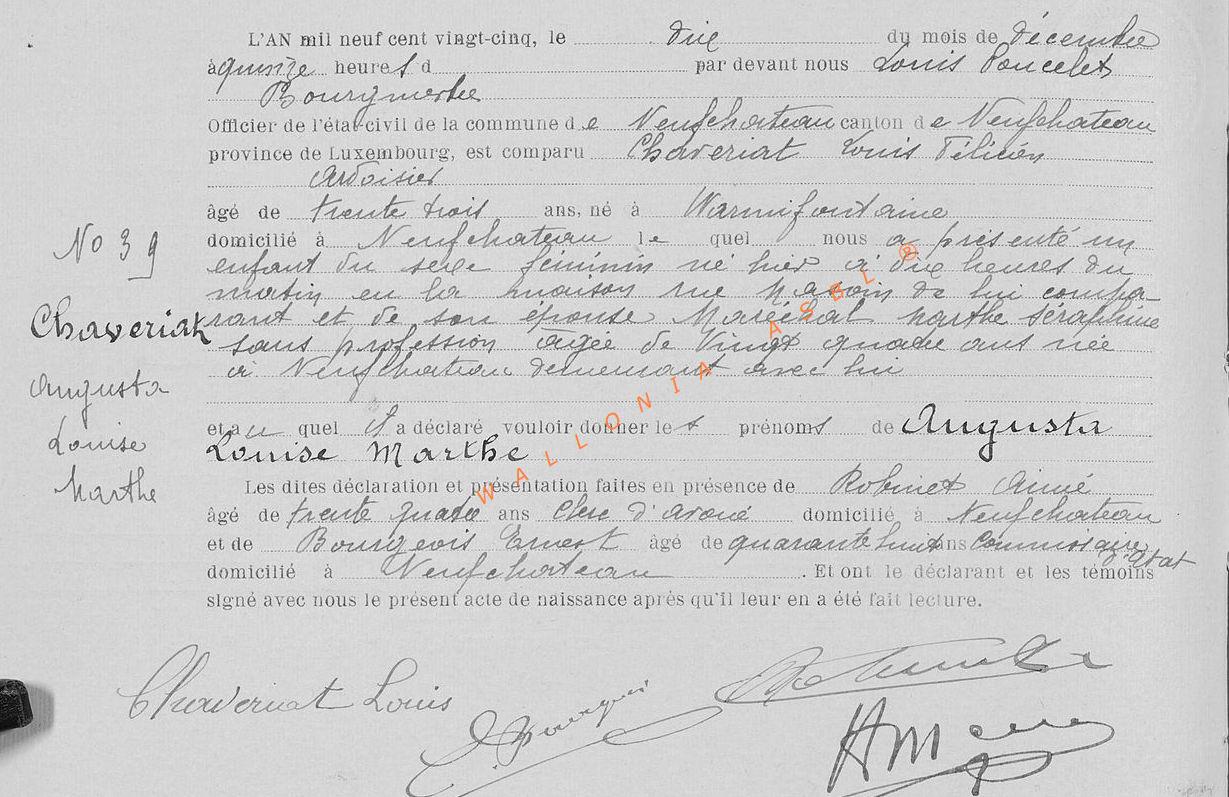 L'AN mil neuf cent vingt-cinq, le dix du mois de décembre
à quinze heures d par devant nous Louis Poncelet
Bourgmestre
Officier de l'état-civil de la commune de Neufchateau canton de Neufchateau
province de Luxembourg, est comparu Chaveriat Louis Félicien
Ardoisier
âgé de trente trois ans, né à Warmifontaine
No 39
domicilié à Neufchateau le quel nous a présenté un
enfant du sexe féminin né hier à dix heures du
matin en la maison rue de lui compa-
Chaveriat
rant et de son épouse Maréchal Marthe Séraphine
sans profession agée de vingt quatre ans née
à Neufchateau demeurant avec lui
Augusta
et au quel il a déclaré vouloir donner les prénoms de Augusta
Louise
Louise Marthe
Marthe
Les dites déclaration et présentation faites en présence de Robinet Aimé
âgé de trente quatre ans Clerc d'avoué domicilié à Neufchateau
et de Bourgeois Ernest âgé de quarante huit ans Commissaire
d'état
domicilié à Neufchateau . Et ont le déclarant et les témoins
signé avec nous le présent acte de naissance après qu'il leur en a été fait lecture.
WALLONIA ASBL ®
Chaveriat Louis
E. Bourgeois